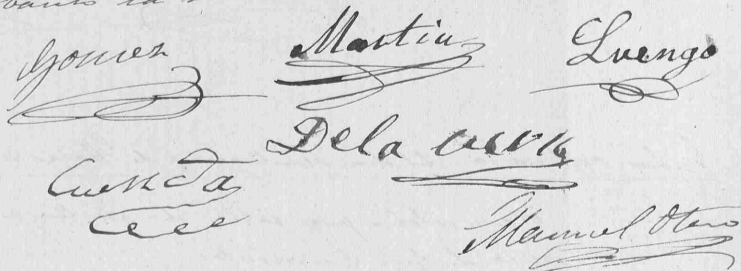 Gomez Martin Luengo
De la
Cuenda
Manuel Otero